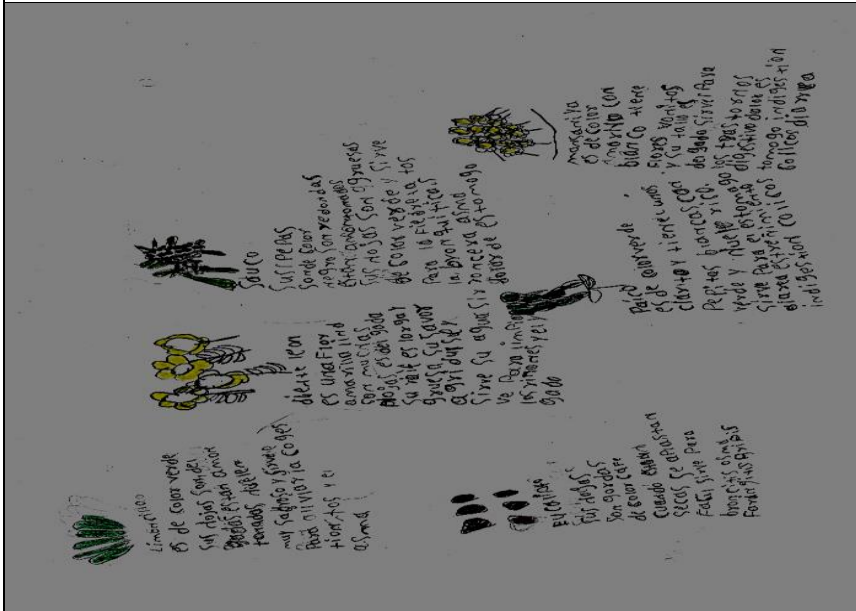 Limoncillo
es de color verde
sus hojas son del
gadas estan amon
tonadas huelen
muy sabroso y sirve
Para aliviar la coges
tion, tos y el
asma
diente leon
es una Flor
amarilla lind
con muchas
hojas es del gada
su raiz es larga y
gruesa su savor
agridulse y
Sirve su agua sir
ve Para limpia
los riñones y el
gado
Sauco
Sus Pepas
Son de color
negro son redondas
estan amontonadas
sus hojas son gruesas
de color verde y sirve
Para la Fiebre la tos
la bronquitica,s
ronçera asma
dolor de estomago
Eucalipto
sus hojas
son gordas
de color cafe
cuando estan
secas se aplastan
Facil sirve Para
bronquis asma
Farinjitis gripis
Paico
es de color verde
clarito y tiene unas
Pepitas blancas con
verde y huele rico.
Sirve Para el estomago
diarea estreñimiento
indigestion colicos
margarita
es de color
amarillo con
blanco tiene
Flores bonitos
y su tallo es
delgado sirve Para
los trastornos
digestivo dolor es
tomogo indigestion
Colicos diarrea